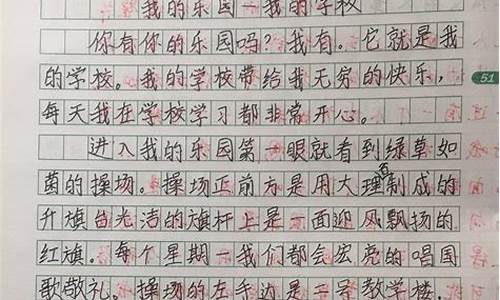 我的乐园—我的学校
你有你的乐园吗？我有。它就是我
的学校。我的学校带给我无穷的快乐，
每天我在学校学习都非常开心。
51
进入我的乐园第一眼就看到绿草如
茵的操场；操场正前方是用大理石制成的
升旗台光洁的旗杆上是一面迎风飘扬的
红旗。每个星期一我们都会宏亮的唱国
歌敬礼。操场的左手边是三号教学楼，